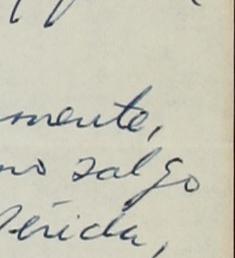 mente,
no salgo
Mérida,